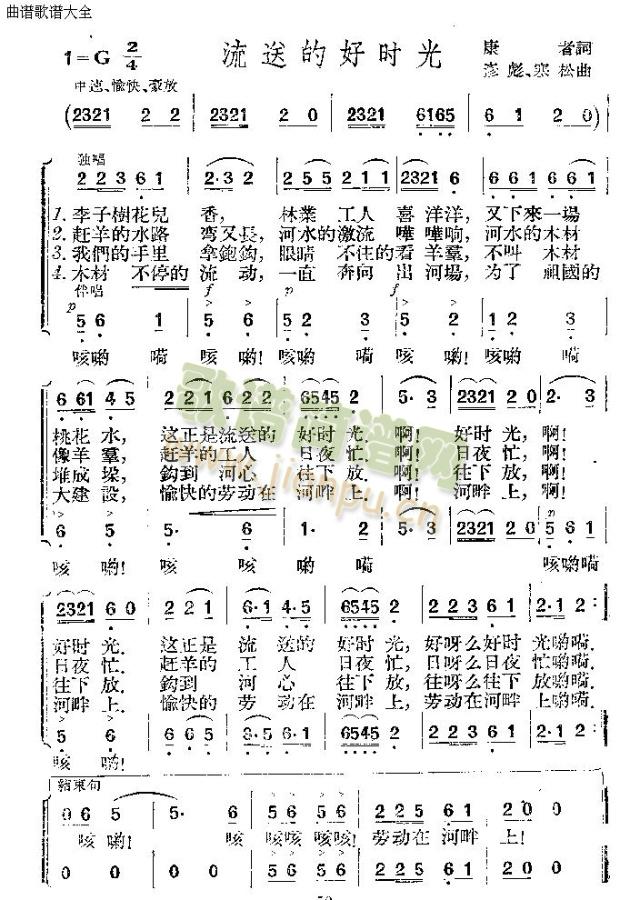 曲谱歌谱大全
流送的好时光
1=G 2/4
康 者詞
彦彪、寒松曲
中速、愉快、豪放
(2321 2 2 | 2321 2 0 | 2321 6165 | 6 1 2 0)
独唱
2 2 3 6 1 | 2·3 2 | 2 5 5 2 1 | 2321 6 | 5 6 1 6 6 1
1. 李子樹花兒 香, 林業 工人 喜 洋洋, 又下來一場
2. 赶羊的水路 弯又長, 河水的激流 嘩嘩响, 河水的木材
3. 我們的手里 拿鉋鈎, 眼睛 不住的看 羊羣, 不叫 木材
4. 木材 不停的 流动, 一直 奔向 出 河場, 为了 祖國的
伴唱
p f p f
5 6 1 | 5 6 | 5 2 3 | 5 6 | 1 2 3
咳喲 嗬 咳 喲! 咳喲 嗬 咳 喲! 咳喲 嗬
6 61 4 5 | 2 2 1 6 2 2 | 6545 2 | 5·3 | 2321 2 0 | 2·3
桃花 水, 这正是流送的 好时 光. 啊! 好时 光, 啊!
像羊 羣, 赶羊的工人 日夜 忙. 啊! 日夜 忙, 啊!
堆成 垛, 鈎到 河心 往下 放. 啊! 往下 放, 啊!
大建 設, 愉快的劳动在 河畔 上. 啊! 河畔 上, 啊!
6 5 | 5· 6 | 1· 2 | 5·3 | 2321 2 0 | 5 6 1
咳 喲! 咳 咳 喲 嗬 咳喲嗬
2321 6 0 | 2 2 1 | 6·1 4·5 | 6545 2 | 2 2 3 6 1 | 2·1 2
好时 光. 这正是 流 送的 好时 光, 好呀么好时 光喲嗬.
日夜 忙. 赶羊的 工 人 日夜 忙, 日呀么日夜 忙喲嗬.
往下 放. 鈎到 河 心 往下 放, 往呀么往下 放喲嗬.
河畔 上. 愉快的 劳 动在 河畔 上, 劳动在河畔 上喲嗬.
咳 喲!
結束句
0 6 5 | 5· 6 | 5 6 5 6 | 2 2 5 6 1 | 2 0 0
咳 喲! 咳 咳咳 咳咳! 劳动在 河畔 上!
0 0 | 0 0 | 5 6 5 6 | 2 2 5 6 1 | 2 0 0
歌谱简谱网
www.jianpu.cn